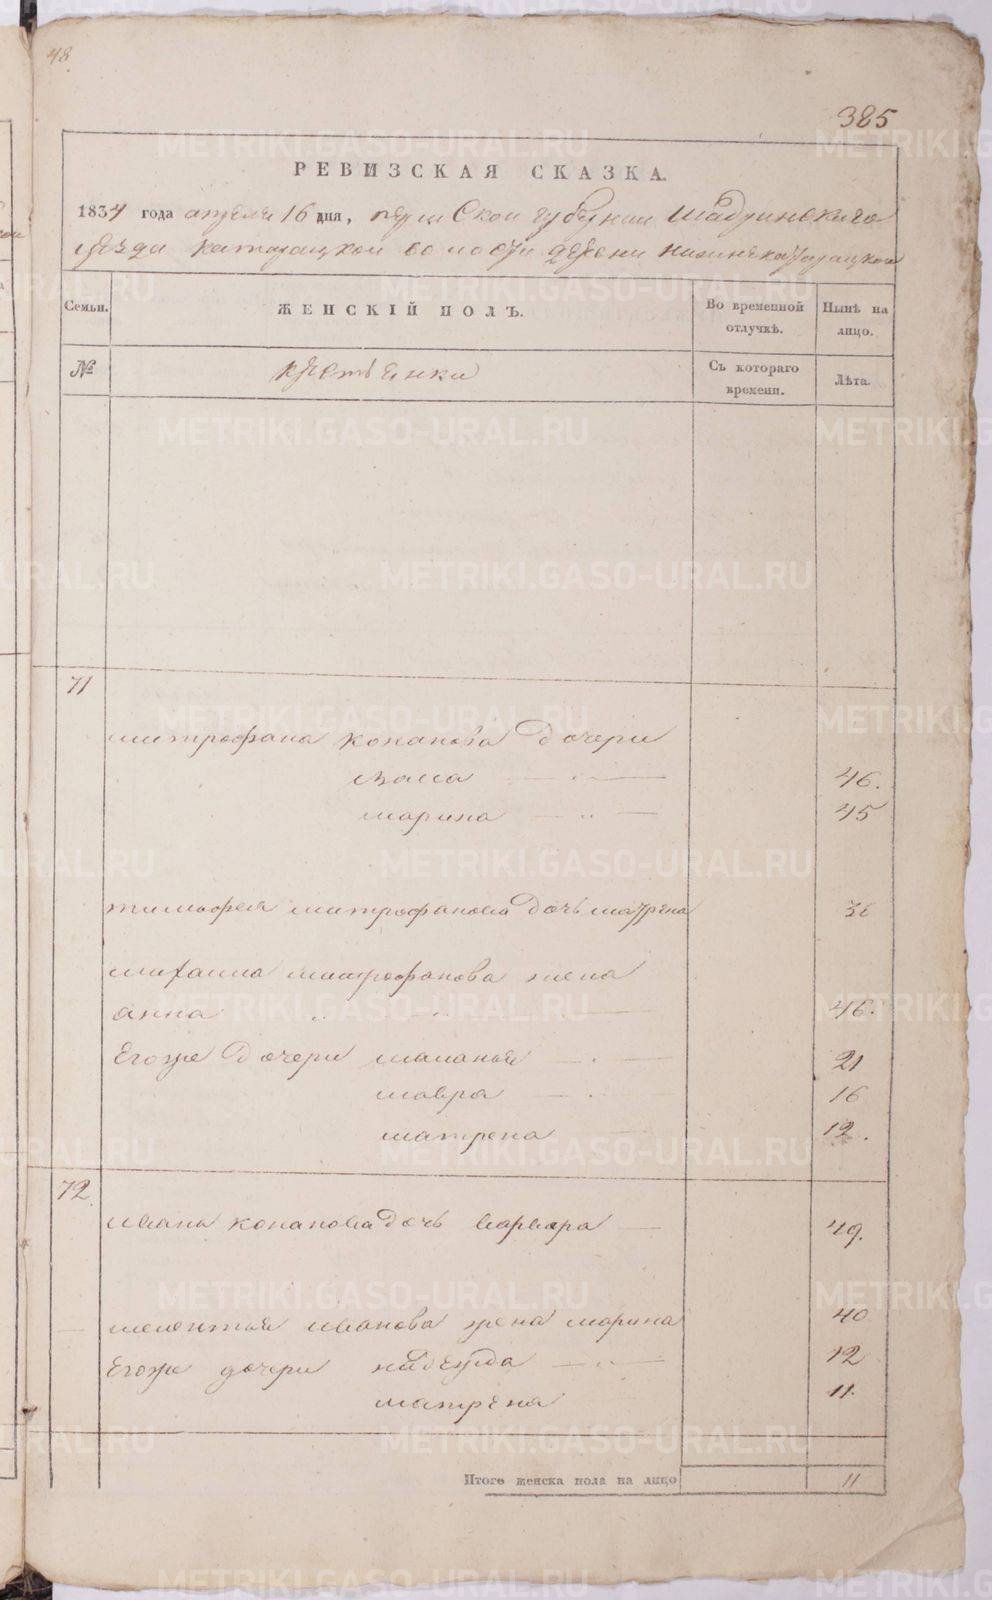 48
385
РЕВИЗСКАЯ СКАЗКА.
1834 года апреля 16 дня, пермской губернии Шадринского
уезда катайацкой волости деревни
Семьи. ЖЕНСКІЙ ПОЛЪ. Во временной отлучкѣ. Нынѣ на лицо.
№ крестьянки Съ котораго времени. Лѣта.
71
митрофана конанова дочери
46.
марина 45
тимофея митрофанова дочь матрена
михаила митрофанова жена
анна 46.
Егоже дочери маланья 21
мавра 16
матрена 12.
72
ивана конанова дочь варвара 49.
мелентья иванова жена марина 40
Егоже дочери надежда 12
матрена 11.
Итого женска пола на лицо 11
METRIKI.GASO-URAL.RU